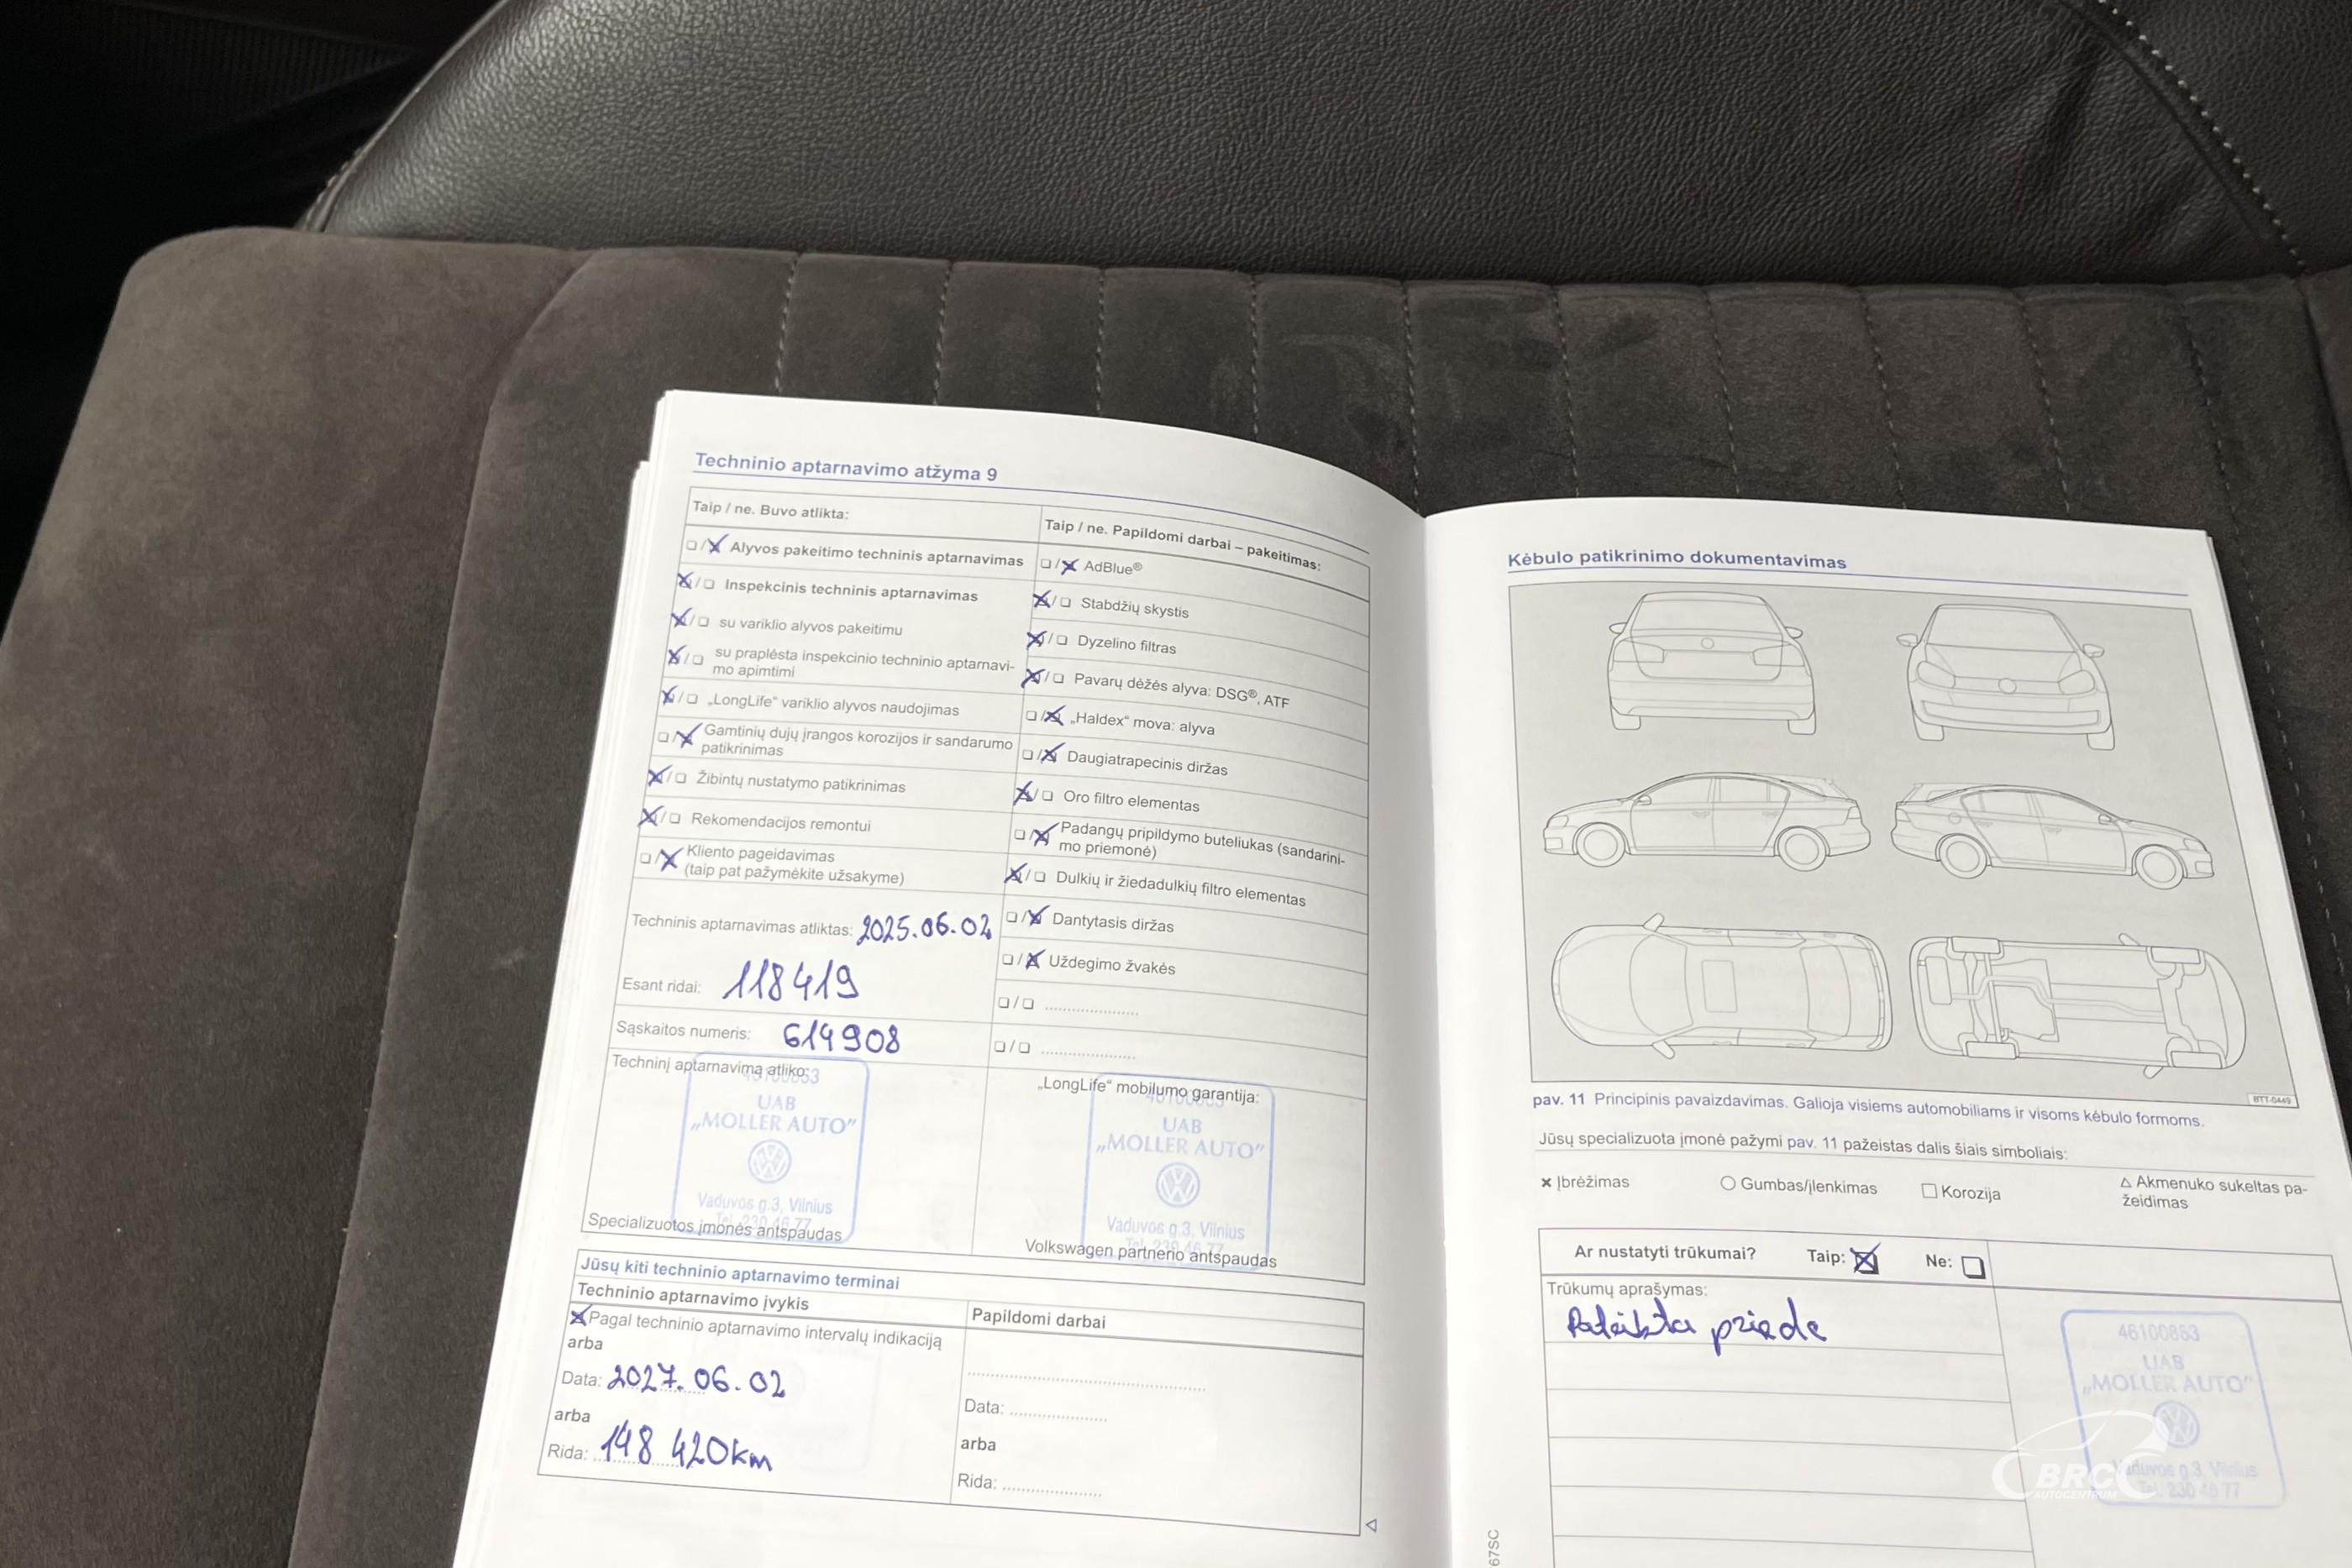 Techninio aptarnavimo atžyma 9
Taip / ne. Buvo atlikta:
Alyvos pakeitimo techninis aptarnavimas
Inspekcinis techninis aptarnavimas
su variklio alyvos pakeitimu
su praplėsta inspekcinio techninio aptarnavi-
mo apimtimi
„LongLife“ variklio alyvos naudojimas
Gamtinių dujų įrangos korozijos ir sandarumo
patikrinimas
Žibintų nustatymo patikrinimas
Rekomendacijos remontui
Kliento pageidavimas
(taip pat pažymėkite užsakyme)
Techninis aptarnavimas atliktas: 2025.06.02
Esant ridai: 118419
Sąskaitos numeris: 614908
Techninį aptarnavimą atliko:
46100853
UAB
„MOLLER AUTO”
Vaduvos g.3, Vilnius
Tel. 230 46 77
Specializuotos įmonės antspaudas
Taip / ne. Papildomi darbai – pakeitimas:
AdBlue®
Stabdžių skystis
Dyzelino filtras
Pavarų dėžės alyva: DSG®, ATF
„Haldex“ mova: alyva
Daugiatrapecinis diržas
Oro filtro elementas
Padangų pripildymo buteliukas (sandarini-
mo priemonė)
Dulkių ir žiedadulkių filtro elementas
Dantytasis diržas
Uždegimo žvakės
„LongLife“ mobilumo garantija:
46100853
UAB
„MOLLER AUTO”
Vaduvos g 3, Vilnius
Tel. 230 46 77
Volkswagen partnerio antspaudas
Jūsų kiti techninio aptarnavimo terminai
Techninio aptarnavimo įvykis
Pagal techninio aptarnavimo intervalų indikaciją
arba
Data: 2027.06.02
arba
Rida: 148 420km
Papildomi darbai
Data:
arba
Rida:
Kėbulo patikrinimo dokumentavimas
BTT-0449
pav. 11 Principinis pavaizdavimas. Galioja visiems automobiliams ir visoms kėbulo formoms.
Jūsų specializuota įmonė pažymi pav. 11 pažeistas dalis šiais simboliais:
× Įbrėžimas
○ Gumbas/įlenkimas
□ Korozija
△ Akmenuko sukeltas pa-
žeidimas
Ar nustatyti trūkumai? Taip: Ne:
Trūkumų aprašymas:
46100853
UAB
„MOLLER AUTO”
Vaduvos g 3, Vilnius
Tel. 230 46 77
BRC
AUTOCENTRUM
67SC